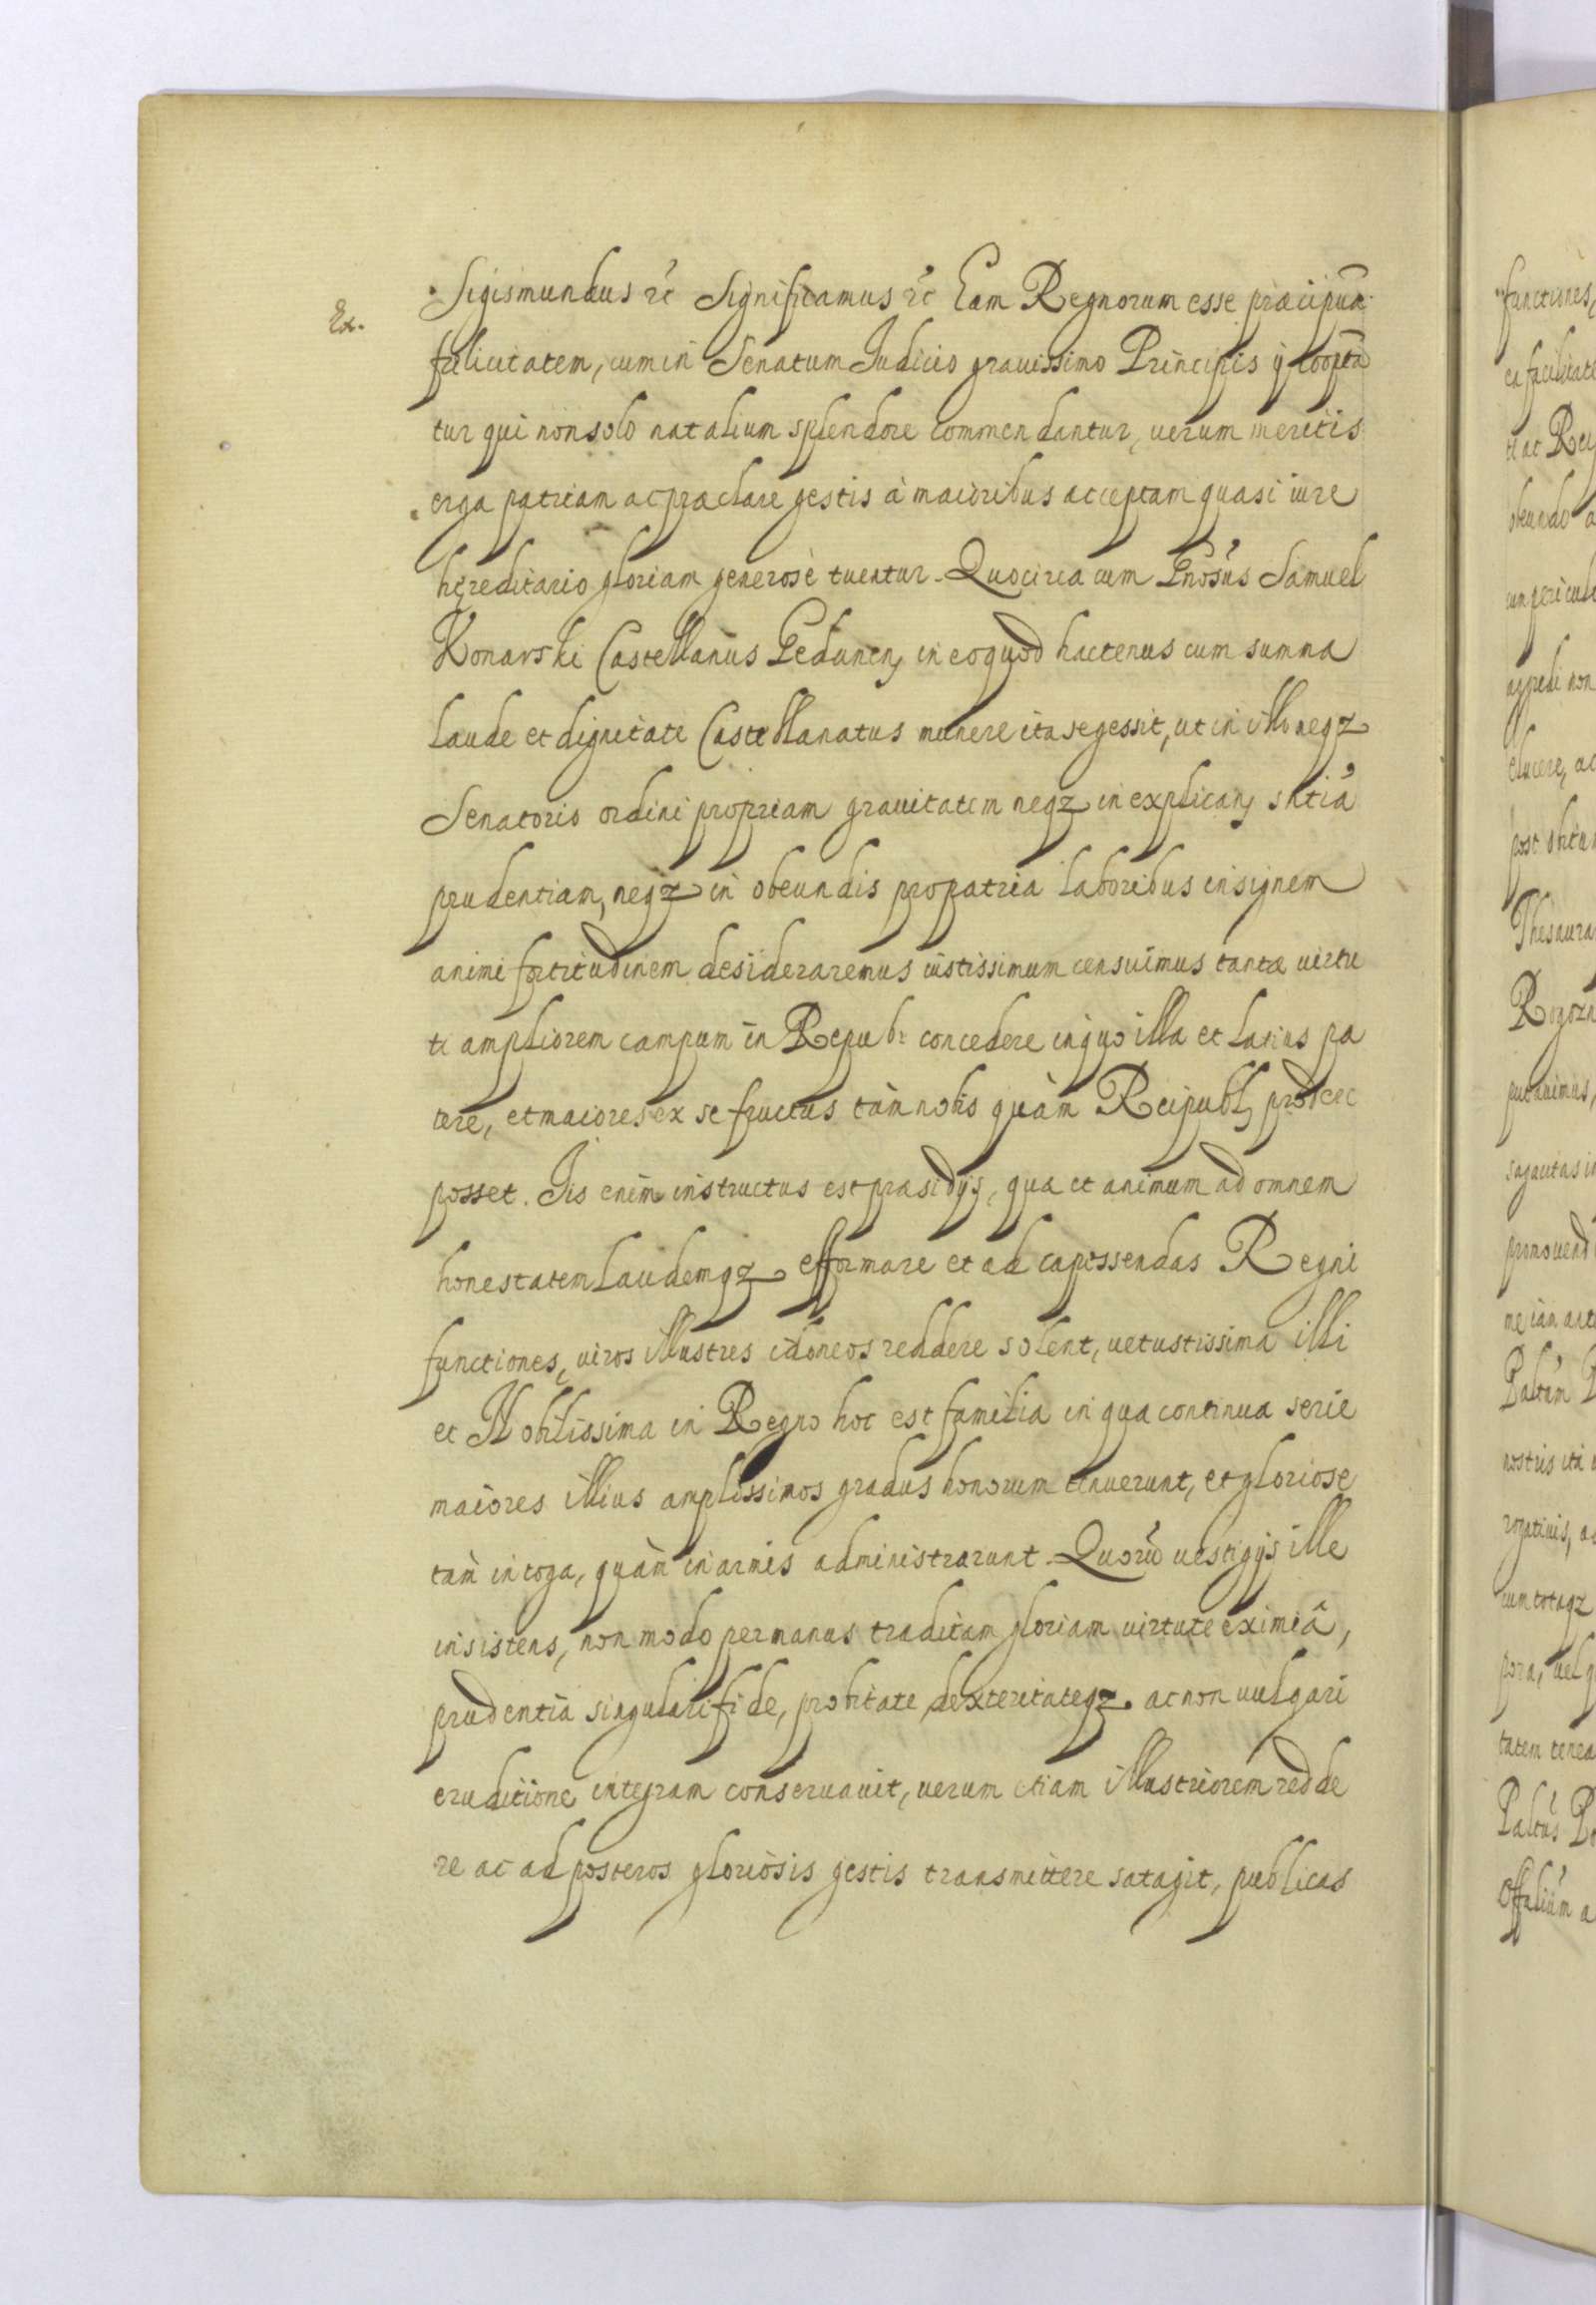 Ex.
Sigismundus etc Significamus etc Eam Regnorum esse præcipuã
fælicitatem, cum in Senatum Judicio grauissimo Principis ij coopta
tur qui non solo natalium splendore commendantur, uerum meritis
erga patriam ac præclare gestis à maioribus acceptam quasi iure
hęreditario gloriam generosè tuentur. Quocirca cum Gnosus Samuel
Konarski Castellanus Gedanen, in eo quod hactenus cum summa
laude et dignitate Castellanatus munere ita se gessit, ut in illo neqz
Senatorio ordini propriam grauitatem neqz in explican, sntiá
prudentiam, neqz in obeundis pro patria laboribus insignem
animi fortitudinem desideraremus iustissimum censuimus tantæ uirtu
ti ampliorem campum in Repub: concedere in quo illa et latius pa
tere, et maiores ex se fructus tàm nobis quàm Reipubl,
posset. Jis enim instructus est præsidijs, quæ et animum ad omnem
honestatem laudemqz efformare et ad capessendas Regni
functiones, uiros illustres idoneos reddere solent, uetustissima illi
et Nobilissima in Regno hoc est familia in qua continua serie
maiores illius amplissimos gradus honorum tenuerunt, et gloriose
tàm in toga, quàm in armis administrarunt. Quorũ uestigijs ille
insistens, non modo per manus traditam gloriam uirtute eximiâ,
prudentia singulari fide, probitate, dexteritateqz ac non uulgari
eruditione integram conseruauit, uerum etiam illustriorem redde
re ac ad posteros gloriosis gestis transmittere satagit, publicas
functiones,
ea facilitate
ti ac Rei
obeundo a
cum pericul
aggredi non
elucere, ac
post obitum
Thesaura
Rogozn
putauimus,
sagacitas in
promouend
me iàm ant
Paltám P
nostris ita
rogatiuis, ac
cum totaqz
pora, uel q
tatem tenea
Paltús Po
Offalium a